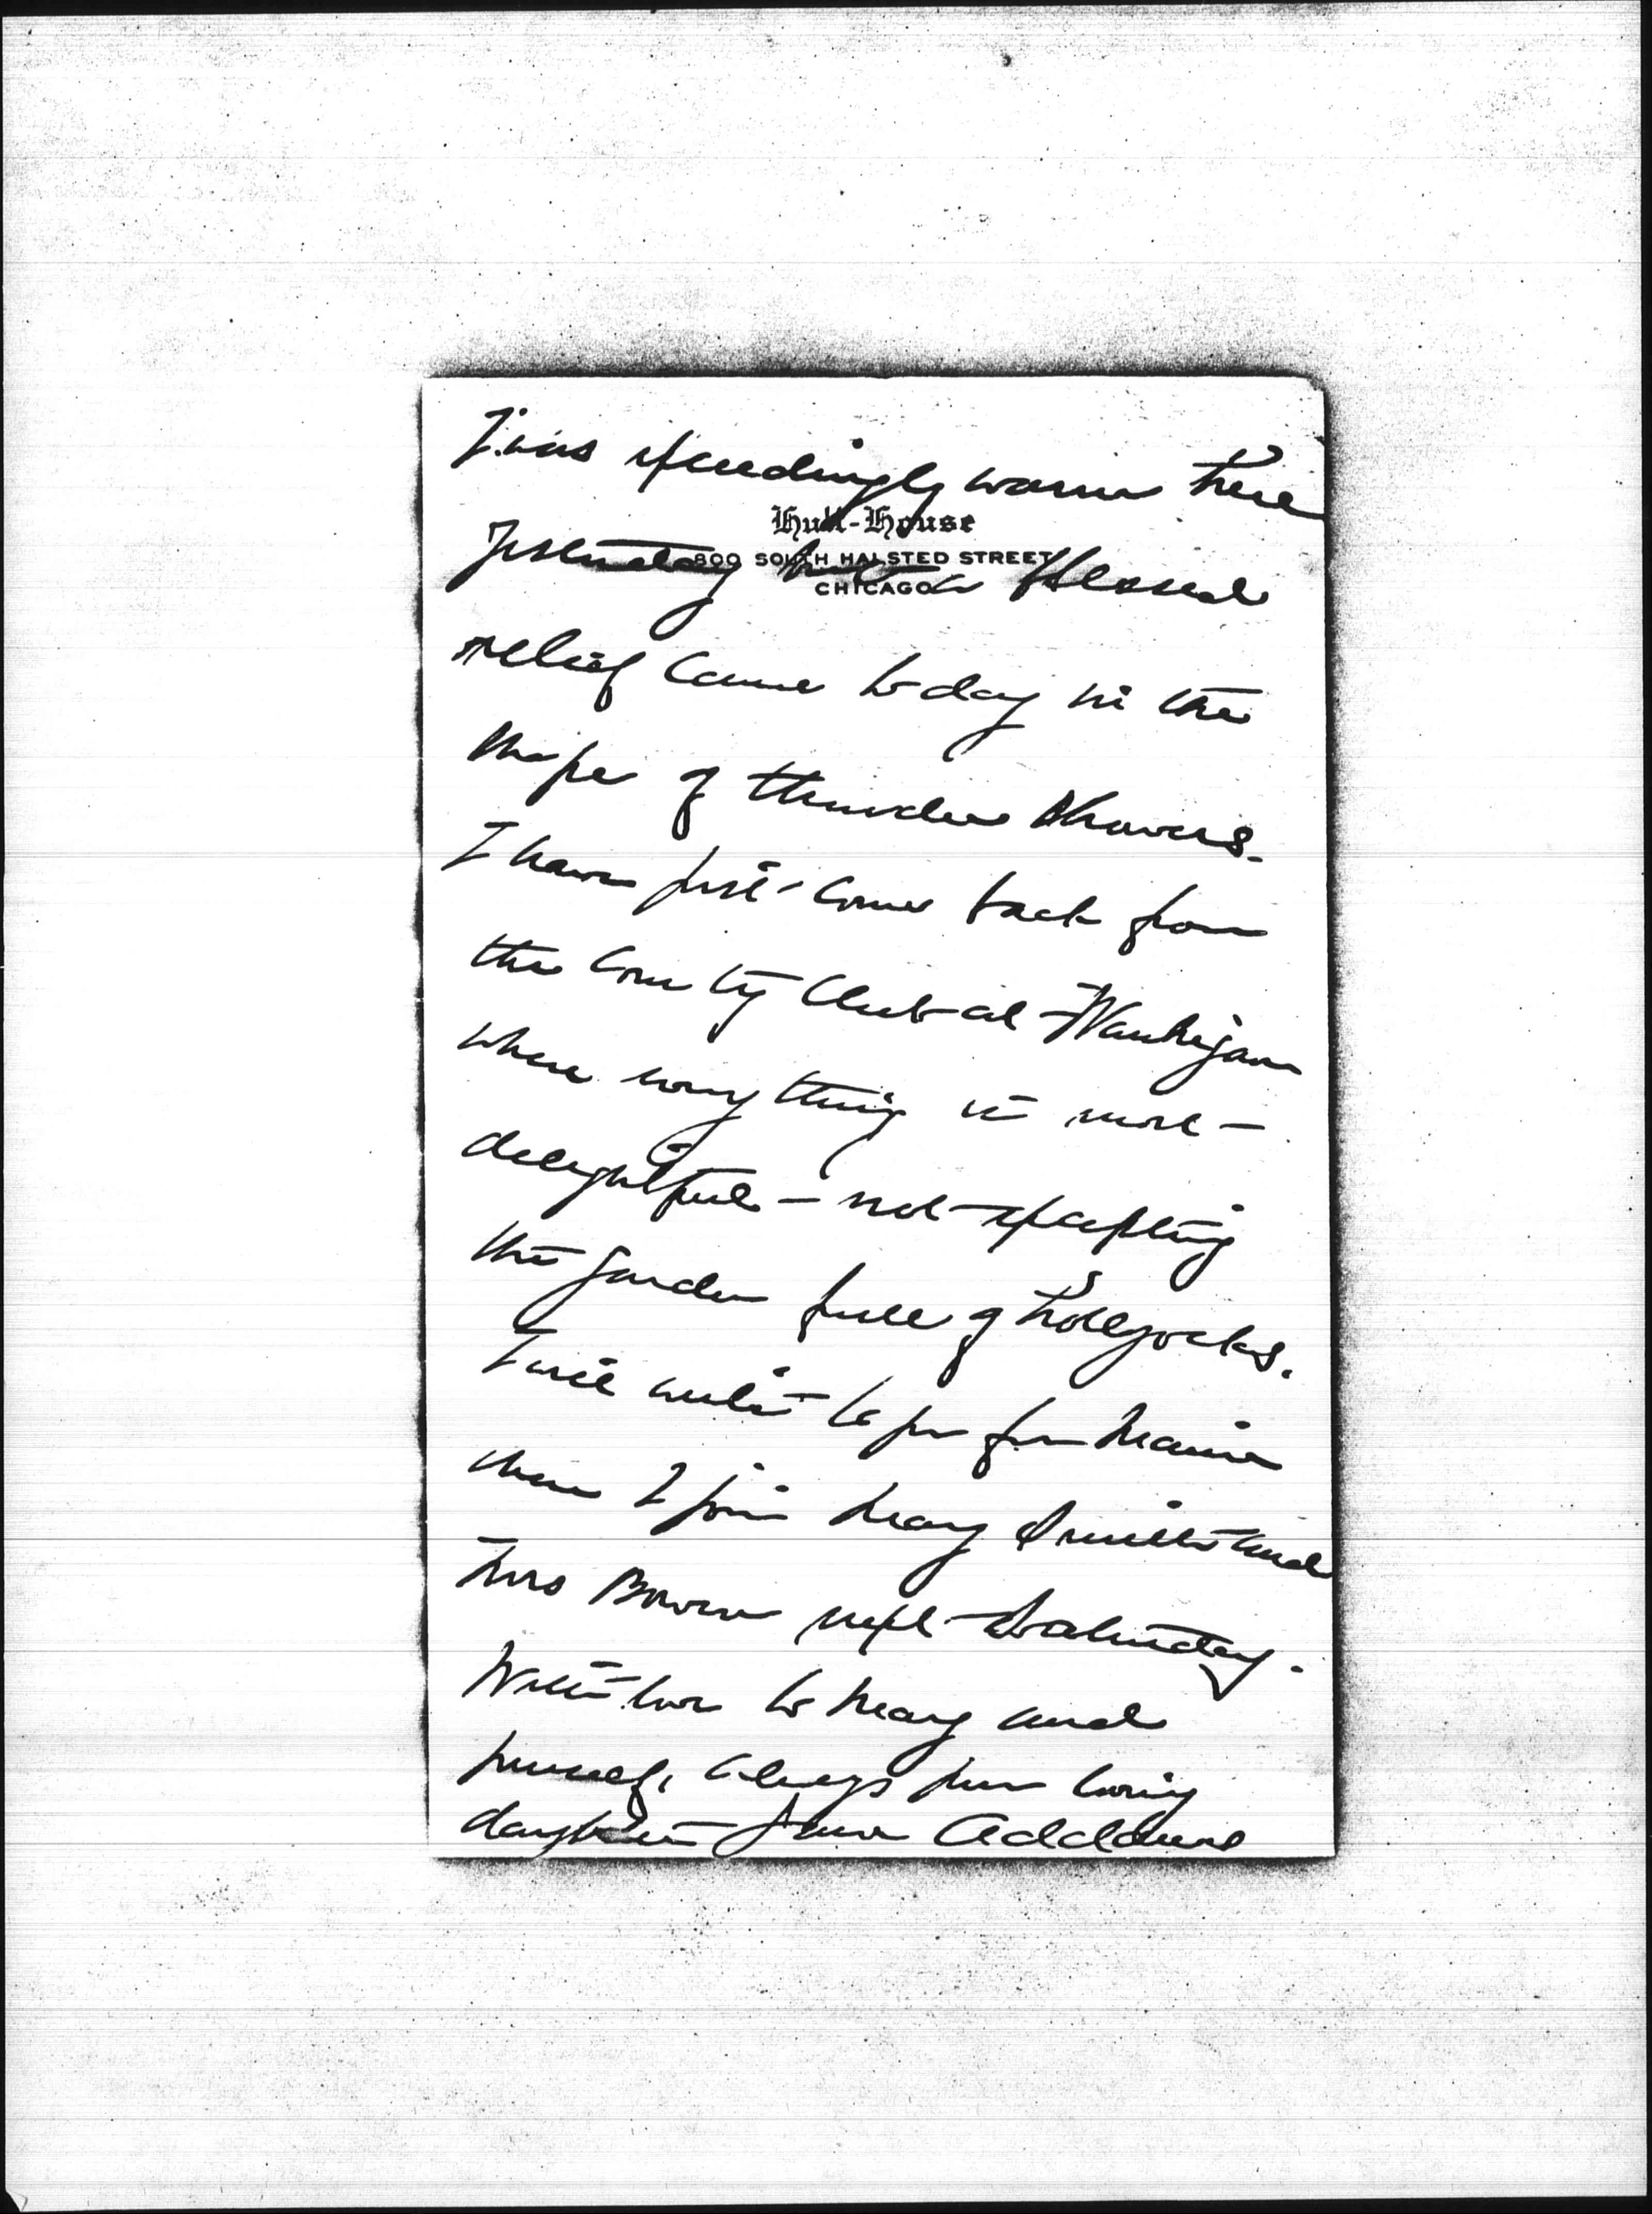 T'was exceedingly warm here
Hull-House
yesterday but a blessed
800 SOUTH HALSTED STREET
CHICAGO
relief came today in the
shape of thunder showers.
I have just come back from
the Country Club at Waukegan
where everything is most
delightful — not excepting
the garden full of hollyhocks.
I will write to you from Maine
where I join Mary Smith and
Mrs Bowen next Saturday.
With love to Mary and
yourself, always your loving
daughter Jane Addams